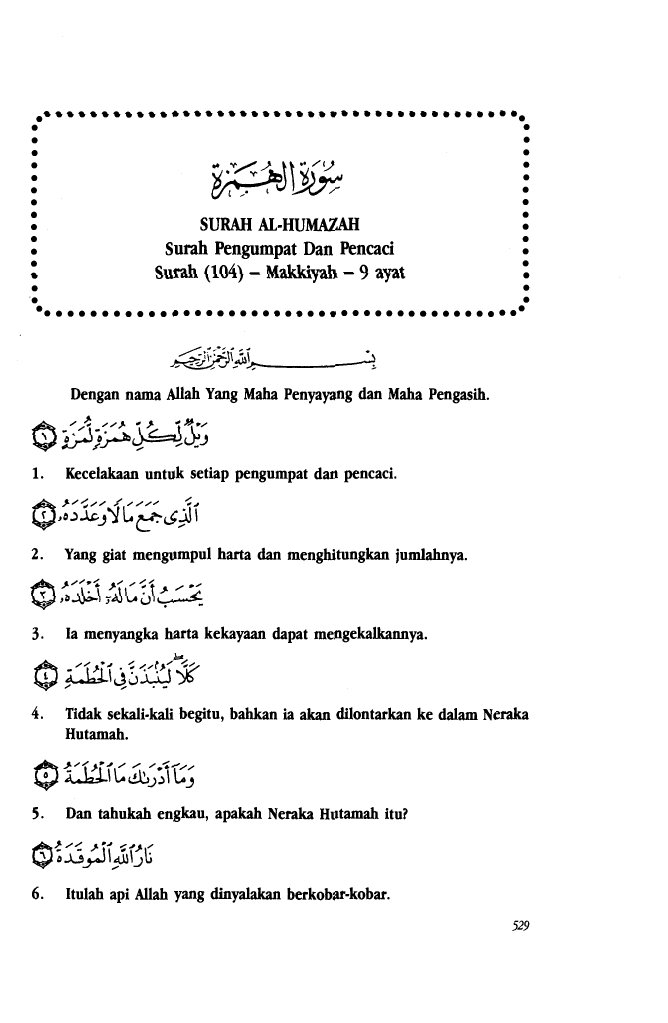 سورة الهمزة
SURAH AL-HUMAZAH
Surah Pengumpat Dan Pencaci
Surah (104) – Makkiyah – 9 ayat
بِسْمِ اللَّهِ الرَّحْمَٰنِ الرَّحِيمِ
Dengan nama Allah Yang Maha Penyayang dan Maha Pengasih.
وَيْلٌ لِّكُلِّ هُمَزَةٍ لُّمَزَةٍ ١
1. Kecelakaan untuk setiap pengumpat dan pencaci.
ٱلَّذِى جَمَعَ مَالًا وَعَدَّدَهُۥ ٢
2. Yang giat mengumpul harta dan menghitungkan jumlahnya.
يَحْسَبُ أَنَّ مَالَهُۥٓ أَخْلَدَهُۥ ٣
3. Ia menyangka harta kekayaan dapat mengekalkannya.
كَلَّا ۖ لَيُنۢبَذَنَّ فِى ٱلْحُطَمَةِ ٤
4. Tidak sekali-kali begitu, bahkan ia akan dilontarkan ke dalam Neraka
Hutamah.
وَمَآ أَدْرَىٰكَ مَا ٱلْحُطَمَةُ ٥
5. Dan tahukah engkau, apakah Neraka Hutamah itu?
نَارُ ٱللَّهِ ٱلْمُوقَدَةُ ٦
6. Itulah api Allah yang dinyalakan berkobar-kobar.
529